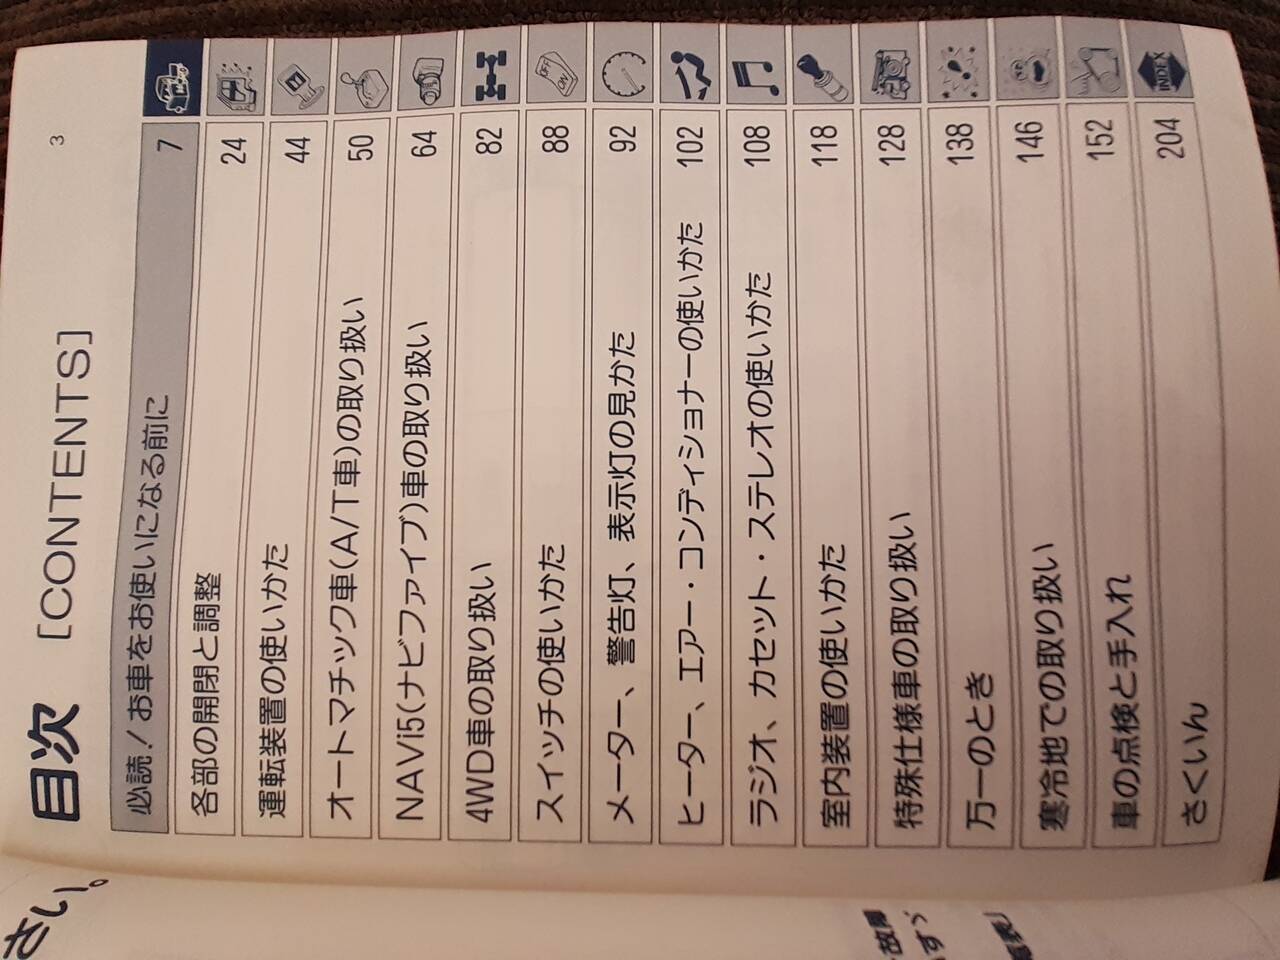 3
目次 [CONTENTS]
必読! お車をお使いになる前に 7
各部の開閉と調整 24
運転装置の使いかた 44
オートマチック車(A/T車)の取り扱い 50
NAVi5(ナビファイブ)車の取り扱い 64
4WD車の取り扱い 82
スイッチの使いかた 88
OFF
ON
メーター、警告灯、表示灯の見かた 92
ヒーター、エアー・コンディショナーの使いかた 102
ラジオ、カセット・ステレオの使いかた 108
室内装置の使いかた 118
特殊仕様車の取り扱い 128
万一のとき 138
寒冷地での取り扱い 146
車の点検と手入れ 152
さくいん 204
INDEX
さい。
故障
すゝ